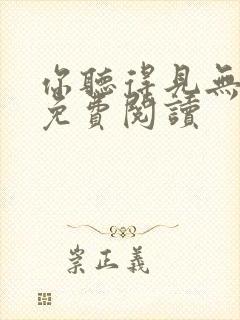 你聽得見無
免費閱讀
崇正義